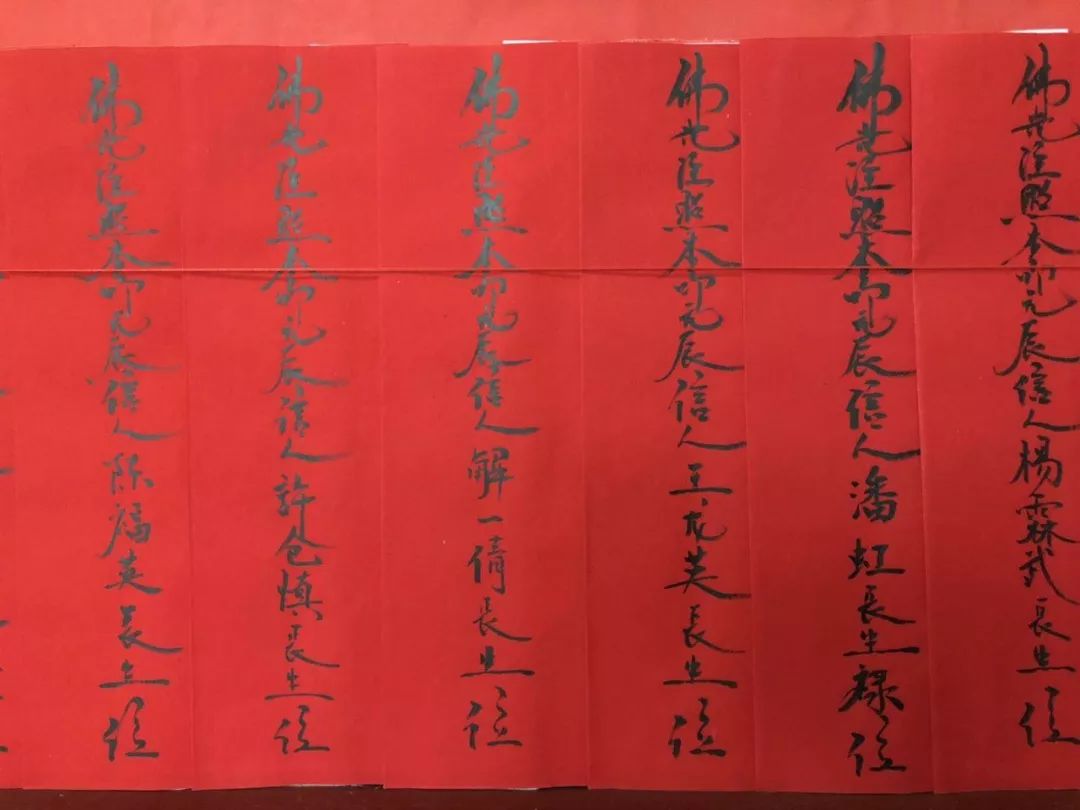 佛光注照本命元辰信人楊霖武長生位
佛光注照本命元辰信人潘虹長生祿位
佛光注照本命元辰信人王龙英長生位
佛光注照本命元辰信人解一倩長生位
佛光注照本命元辰信人許仓慎長生位
佛光注照本命元辰信人陈福英長生位